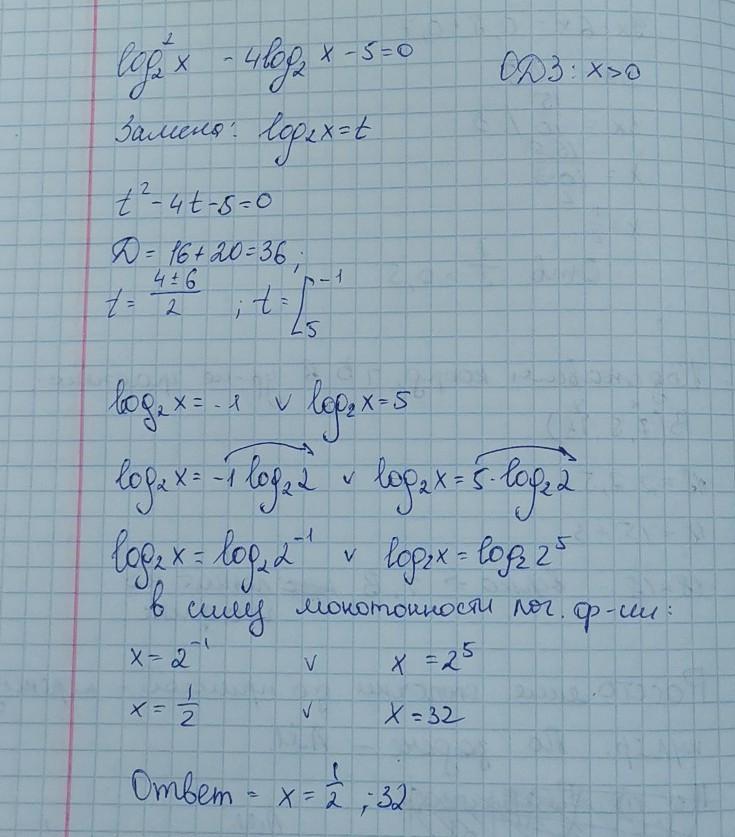 log₂²x - 4log₂ x - 5 = 0    ОДЗ: x>0
Замена: log₂x = t
t² - 4t - 5 = 0
D = 16 + 20 = 36;
t = (4 ± 6)/2 ; t = [ -1
5
log₂x = -1 v log₂x = 5
log₂x = -1 log₂2 v log₂x = 5·log₂2
log₂x = log₂2⁻¹ v log₂x = log₂2⁵
в силу монотонности лог. ф-ии:
x = 2⁻¹ v x = 2⁵
x = 1/2 v x = 32
Ответ - x = 1/2 ; 32